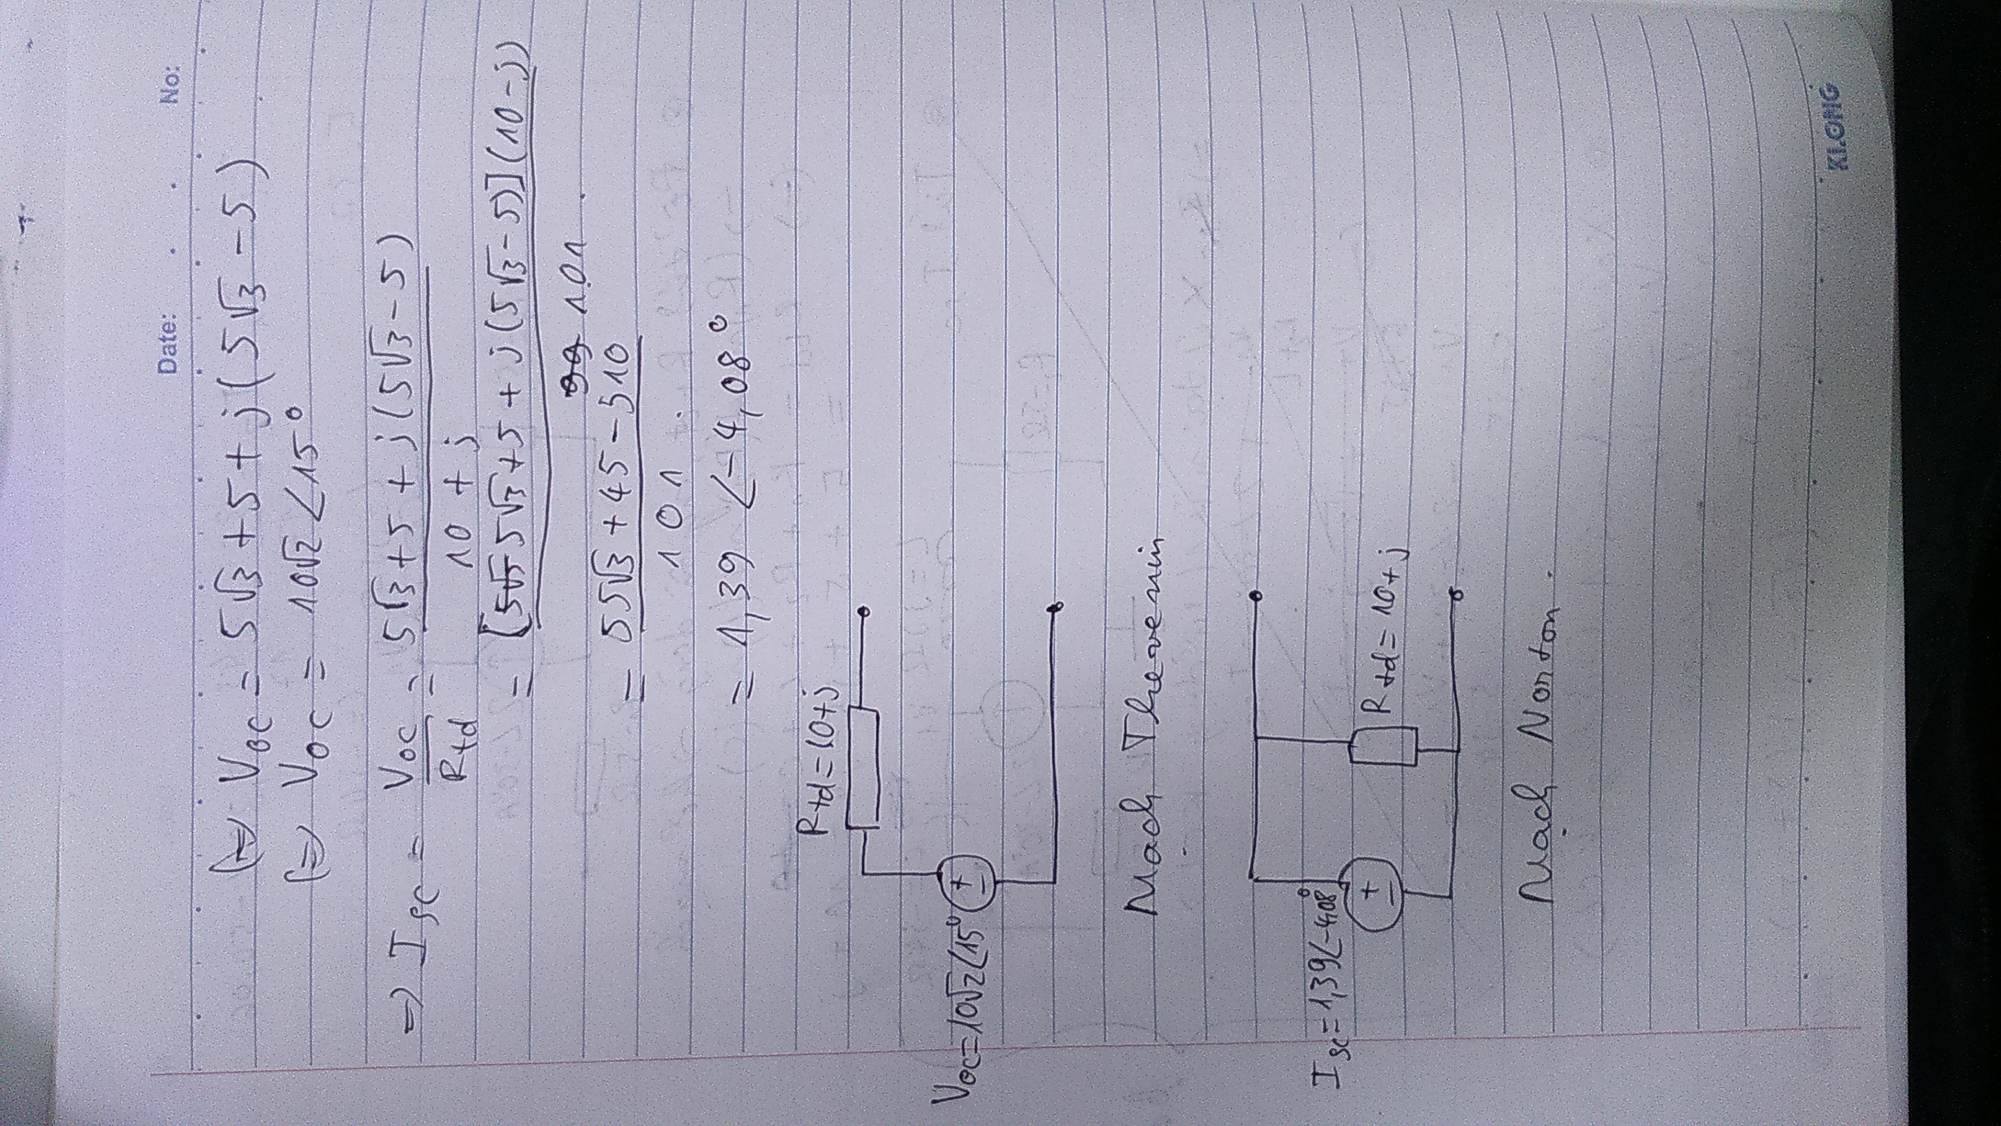 Date: No:
(=) Voc = 5√3 + 5 + j(5√3 - 5)
(=) Voc = 10√2 ∠15°
=) Isc = Voc / Rtd = (5√3 + 5 + j(5√3 - 5)) / (10 + j)
= [5√3 + 5 + j(5√3 - 5)](10 - j) / 101.
= (55√3 + 45 - j10) / 101
= 1,39 ∠-4,08°
Rtd = 10+j
Voc = 10√2∠15°
+
-
Mạch Thevenin
Isc = 1,39∠-4,08°
+
-
Rtd = 10+j
Mạch Norton.
KLONG